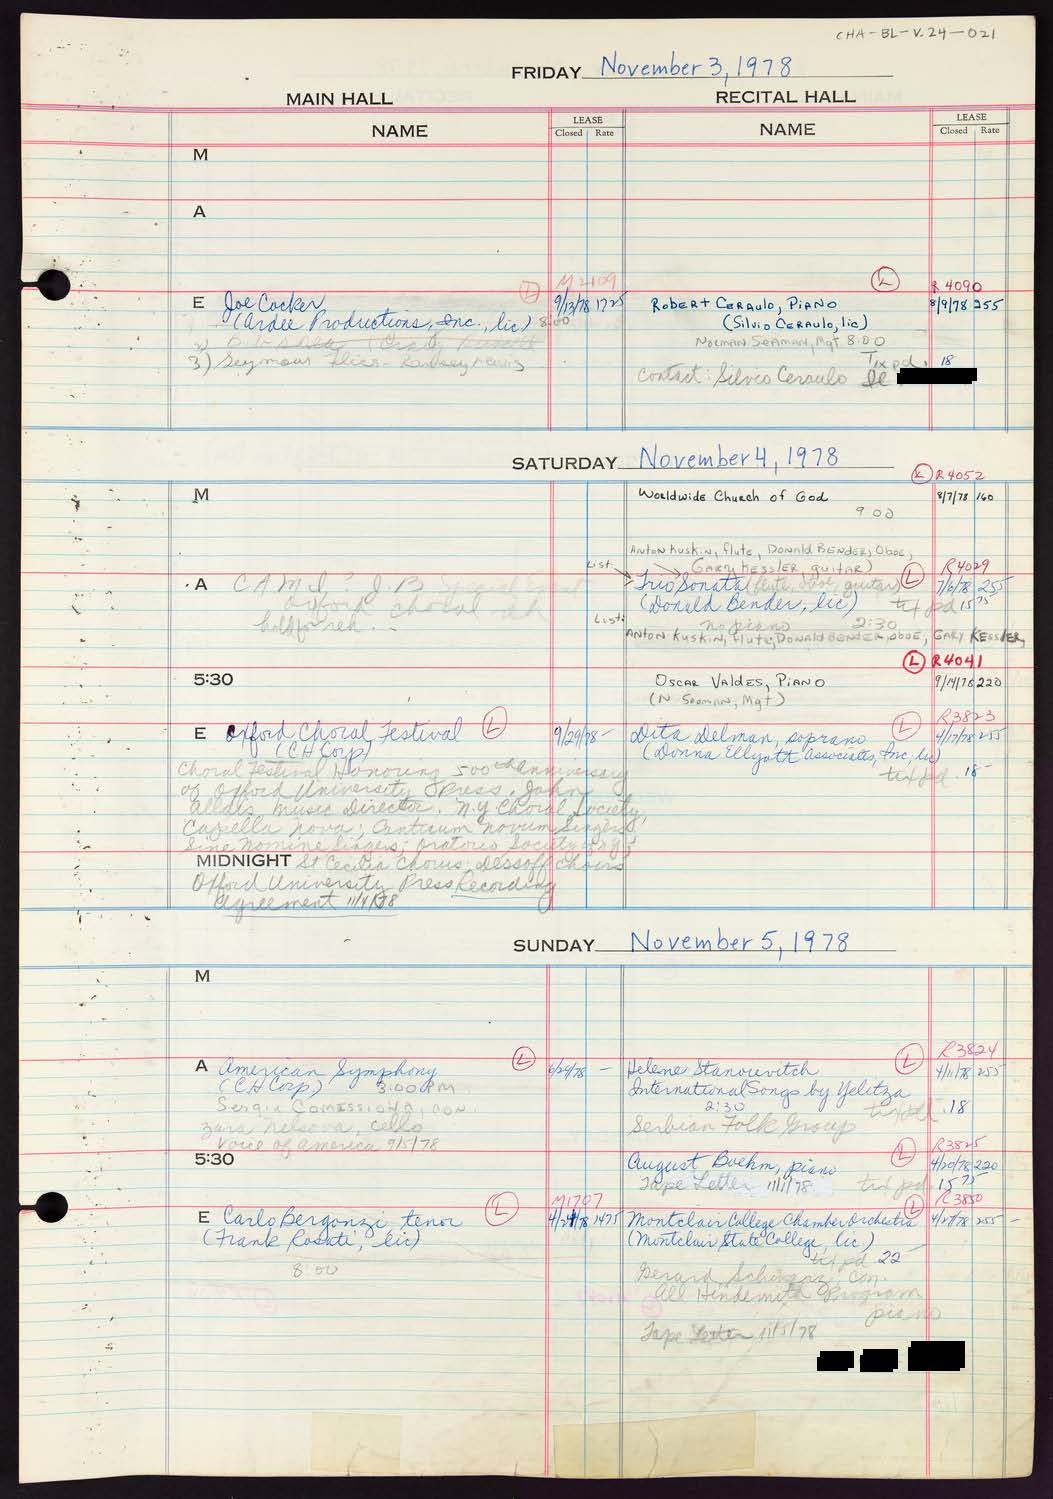 CHA-BL-V.24-021
FRIDAY November 3, 1978
MAIN HALL
RECITAL HALL
NAME
LEASE
Closed Rate
NAME
LEASE
Closed Rate
M
A
L M2109
L R 4090
E Joe Cocker 9/13/78 1725
(Ardee Productions, Inc., lic) 8:00
3) Seymour
Robert Ceraulo, Piano 8/9/78 255
(Silvio Ceraulo, lic)
Norman Seaman, Mgt 8:00
Tix pd. 18
Contact: Silvio Ceraulo
SATURDAY November 4, 1978
L R4052
M
Worldwide Church of God 8/7/78 160
9 00
Anton Kuskin, flute, Donald Bender, Oboe,
Gary Kessler, guitar)
List
L R4029
A
Oxford choral reh
Trio Sonata (flute, oboe, guitar) 7/6/78 255
(Donald Bender, lic) tix pd 15 75
no piano 2:30
List:
Anton Kuskin, flute, Donald Bender, oboe, Gary Kessler,
L R4041
5:30
Oscar Valdes, Piano 9/14/78 220
(N. Seaman, Mgt)
E Oxford Choral Festival L 9/29/78 -
(CH Corp)
Choral Festival Honoring 500th anniversary
of Oxford University Press. John
Alldis, Music Director. N.Y Choral Society,
Capella Nova; Canticum Novum Singers;
Sine Nomine Singers; Oratorio Society of
MIDNIGHT St Cecilia Chorus; Dessoff Choirs
Oxford University Press Recording
Agreement 11/4/78
L R3823
Dita Delman, soprano 4/17/78 255
(Donna Ellyatt Associates, Inc, lic)
tix pd. 18-
SUNDAY November 5, 1978
M
A American Symphony L 6/29/78 -
(CH Corp) 3:00 PM
Sergiu Comissiona, con
Zara Nelsova, cello
Voice of America 9/5/78
L R3824
Helene Stanoievitch 4/11/78 255
International Songs by Yelitza
2:30 tix pd .18
Serbian Folk Group
L R3825
5:30
August Boehm, piano 4/20/78 220
Tape Letter 11/1/78 tix pd. 15 75
L M1707
L R3850
E Carlo Bergonzi, tenor 4/24/78 1475
(Frank Rosati, lic)
8:00
Montclair College Chamber Orchestra 4/27/78 255 -
(Montclair State College, lic)
tix pd 22-
Gerard Schwarz, Con.
All Hindemith Program
piano
Tape Letter 11/5/78